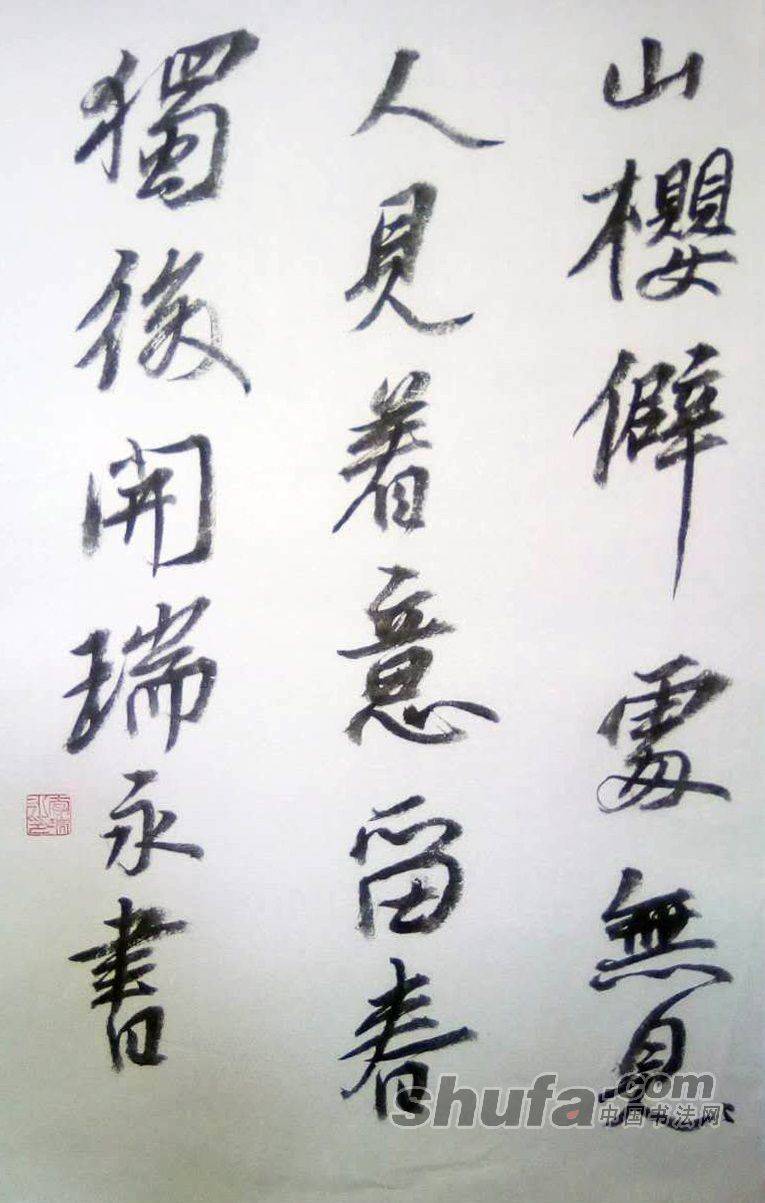 山櫻僻處無見
人見着意留春
獨後開瑞永書
shufa.com
中国书法网